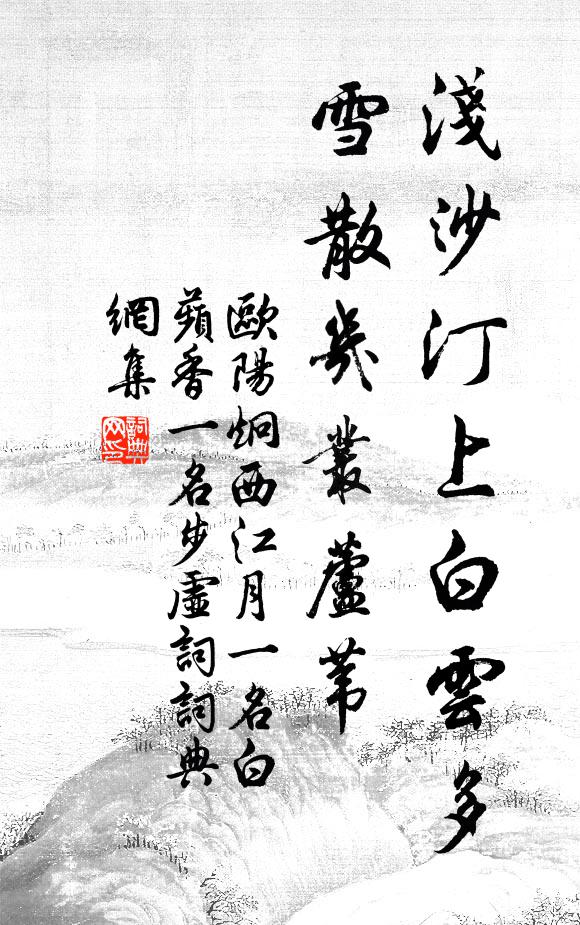 淺沙汀上白雲多
雪散幾叢蘆葦
歐陽炯西江月一名白
蘋香一名步虛詞詞典
網集
詞典
网